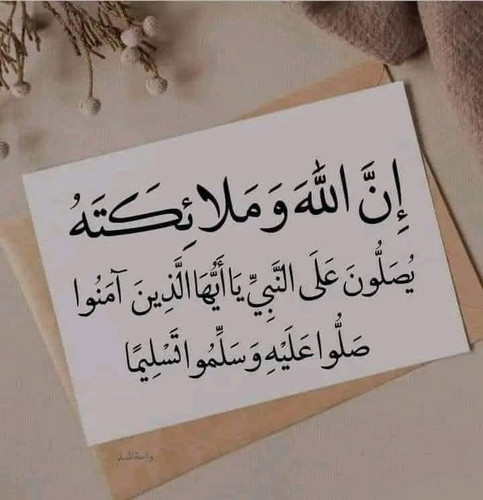 إِنَّ اللَّهَ وَمَلَائِكَتَهُ
يُصَلُّونَ عَلَى النَّبِيِّ يَا أَيُّهَا الَّذِينَ آمَنُوا
صَلُّوا عَلَيْهِ وَسَلِّمُوا تَسْلِيمًا